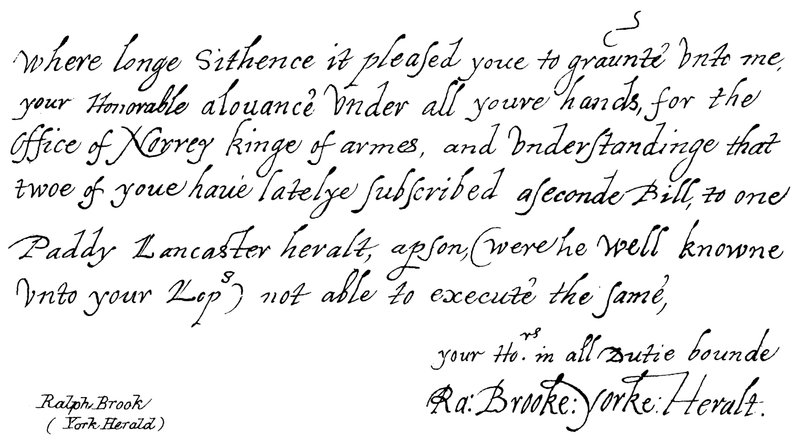 where longe Sithence it pleased youe to graunte Vnto me,
your Honorable alouance Vnder all youre hands, for the
office of Norrey kinge of armes, and Vnderstandinge that
twoe of youe haue latelye subscribed aseconde Bill, to one
Paddy Lancaster heralt, apson, (were he well knowne
Vnto your Lops) not able to execute the same,
your Ho:rs in all Dutie bounde
Ra: Brooke: Yorke: Heralt.
Ralph Brook
(York Herald)